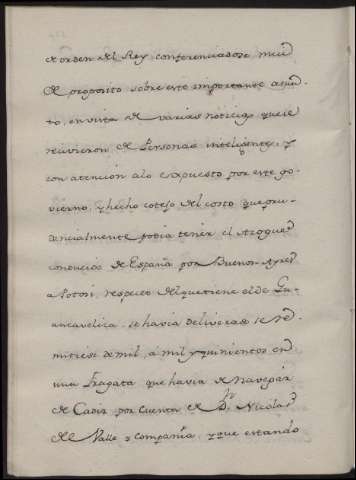 de orden del Rey conferenciadose mui
de proposito sobre este importante asun-
to, en vista de varias noticias que se
recivieron de Personas inteligentes, y
con atencion a lo expuesto por este go-
vierno, y hecho cotejo del costo que pru-
dencialmente podia tener el Azogue
conducido de España por Buenos Ayres
a Potosi, respecto del que tiene el de Gu-
ancavelica, se havia deliverado se re-
mitiese de mil, á mil y quinientos en
una Fragata que havia de Navegar
de Cadiz por cuenta de Dn. Nicolas
del Valle y compañia, y que estando